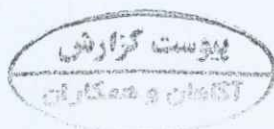 پیوست گزارش
آگاهان و همکاران